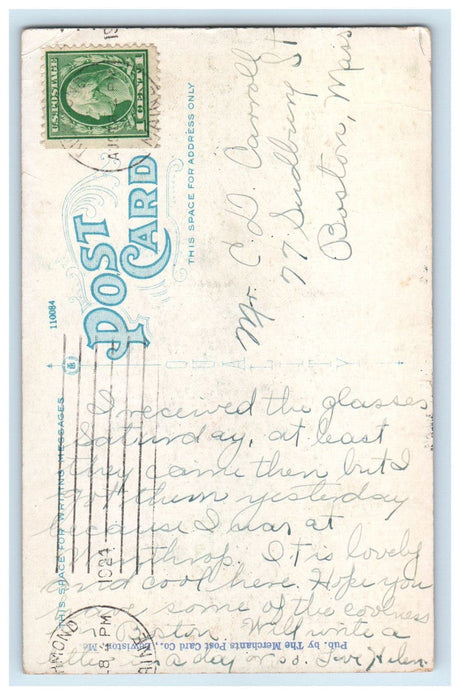 U.S. POSTAGE
1 CENT 1
AU
POST
CARD
THIS SPACE FOR ADDRESS ONLY
Mr. C. D. Carroll
77 Sudbury St
Boston, Mass
110084
QUALITY
THIS SPACE FOR WRITING MESSAGES
I received the glasses
Saturday, at least
they came then but I
got them yesterday
because I was at
Winthrop. It is lovely
and cool here. Hope you
have some of the coolness
in Boston. Will write a
letter in a day or so. Love Helen.
HMOND
8 PM
1924
MAINE
Pub. by The Merchants Post Card Co., Lewiston, Me.